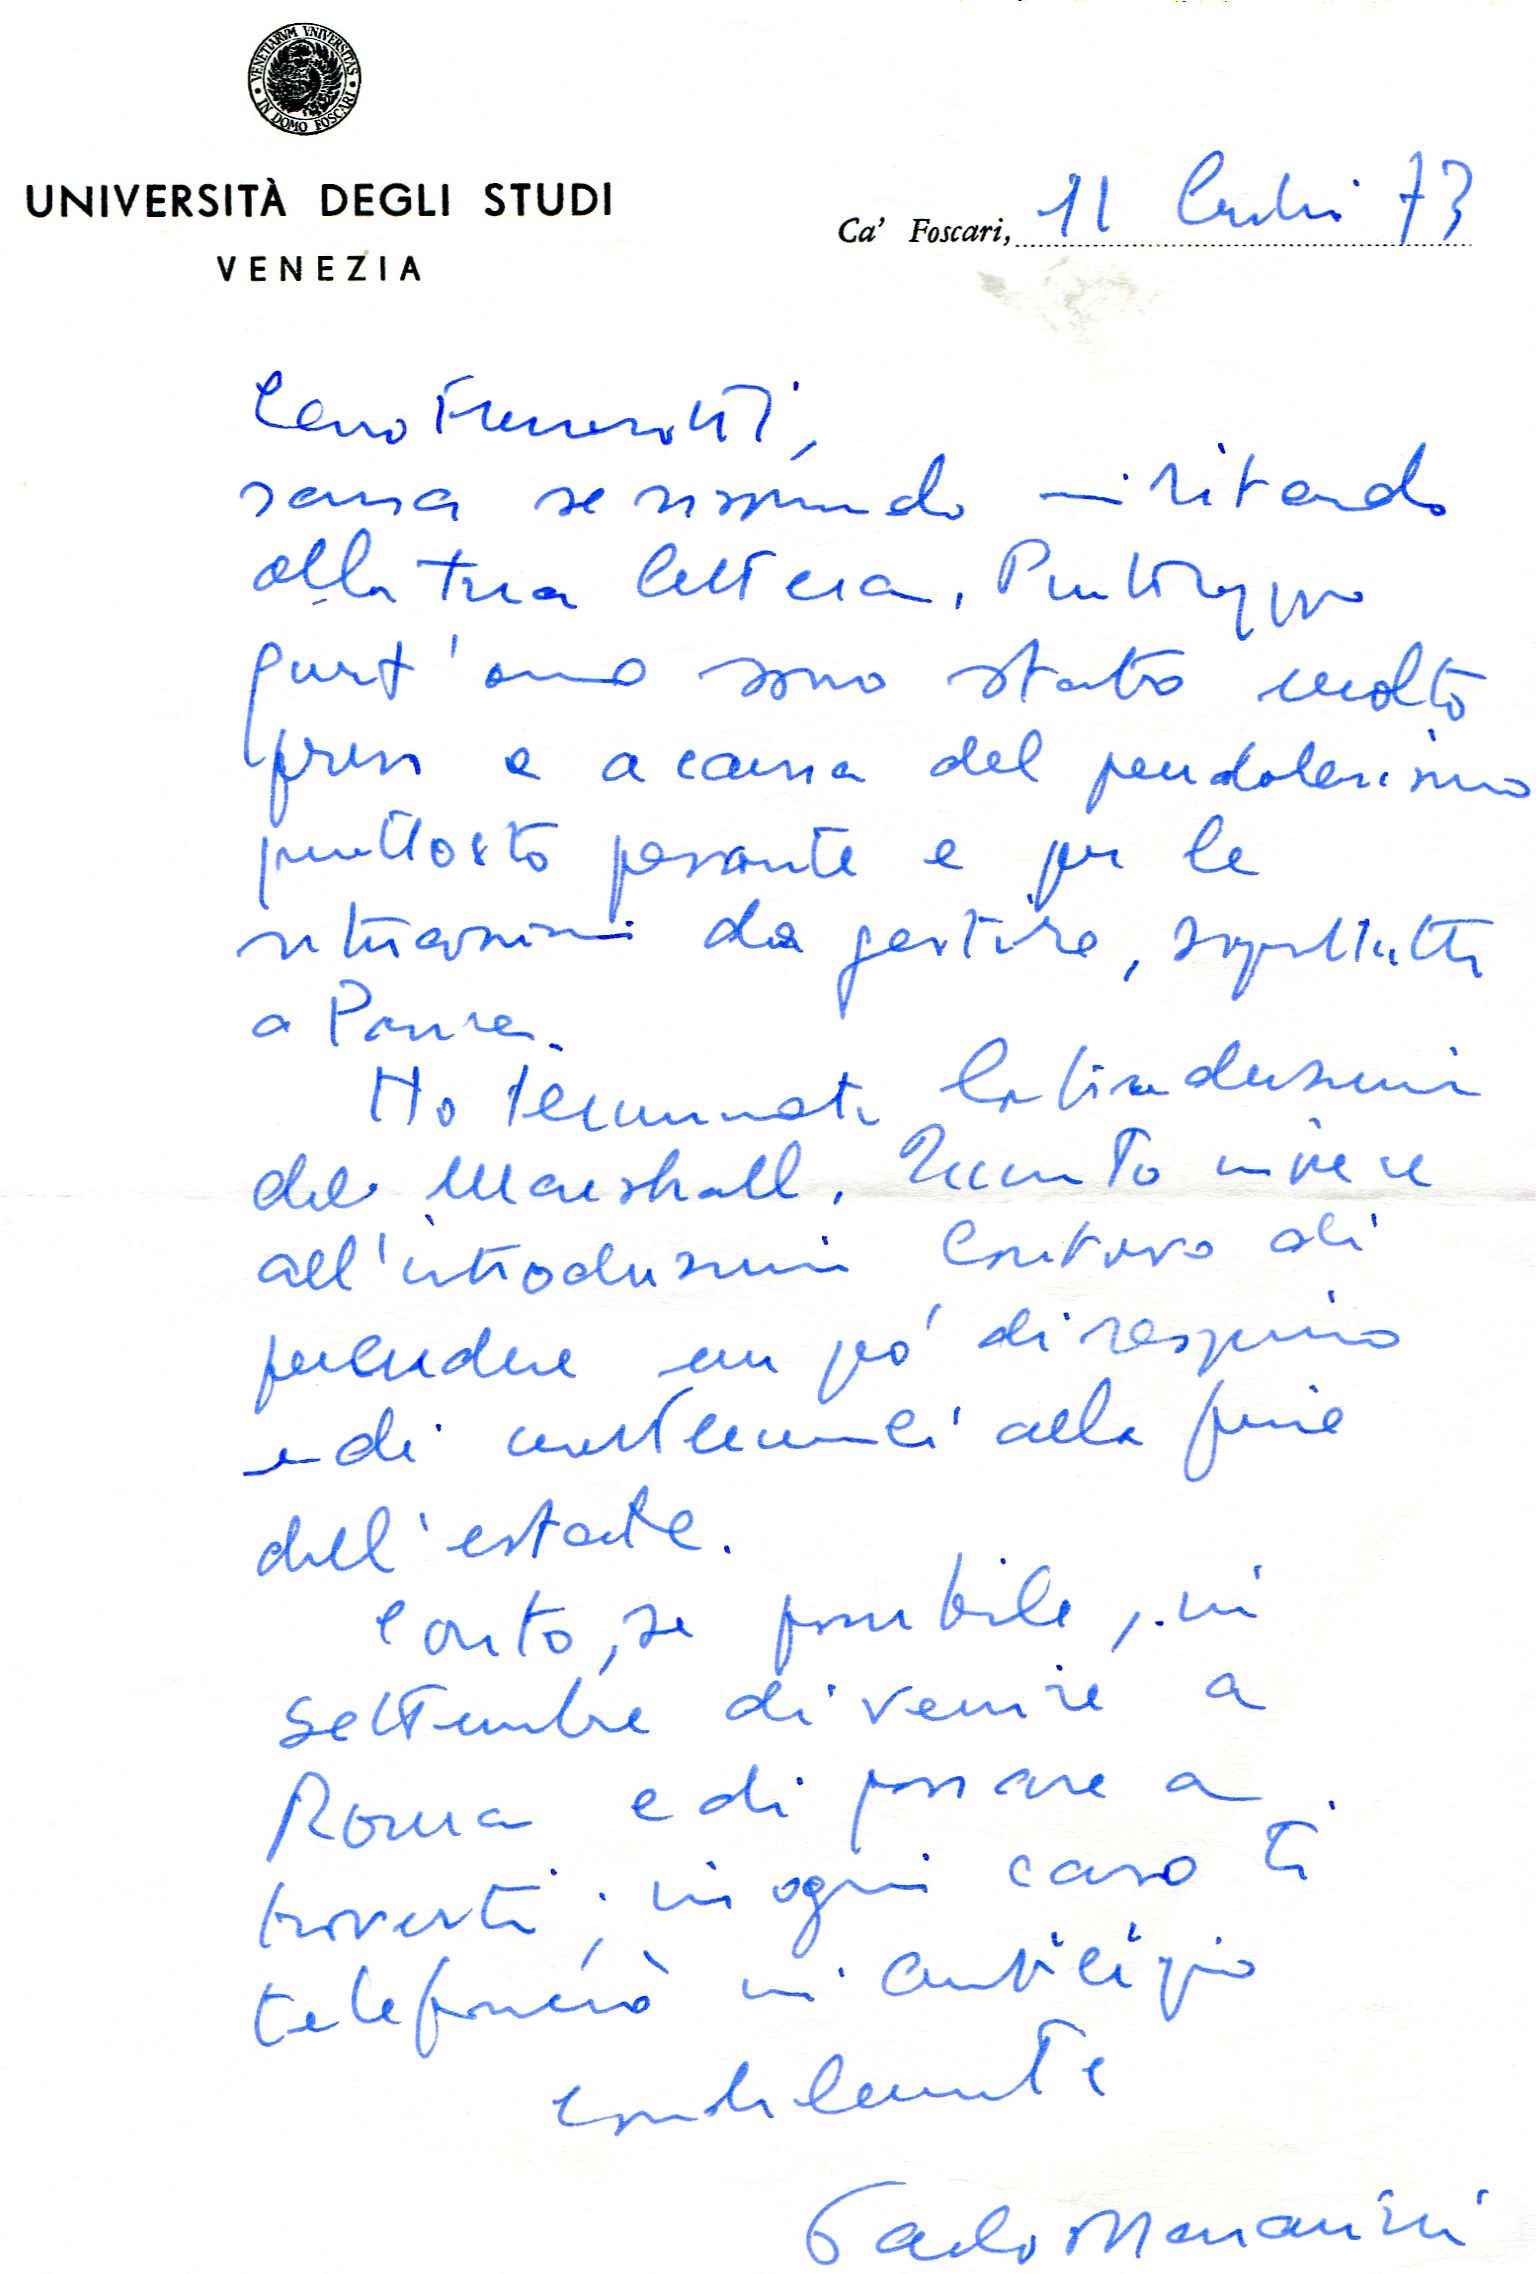 VENETIARVM VNIVERSITAS
IN DOMO FOSCARI
UNIVERSITÀ DEGLI STUDI
VENEZIA
Ca' Foscari, 11 Luglio 73
Caro
scusa se rispondo in ritardo
alla tua lettera. Purtroppo
quest'anno sono stato molto
preso e a causa del pendolarismo
piuttosto pesante e per le
situazioni da gestire, soprattutto
a
Ho terminato la traduzione
del Marshall. Quanto invece
all'introduzione contavo di
prendere un pò di respiro
e di mettermici alla fine
dell'estate.
Conto, se possibile, in
settembre di venire a
Roma e di passare a
trovarti; in ogni caso ti
telefonerò in anticipo
cordialmente
Paolo